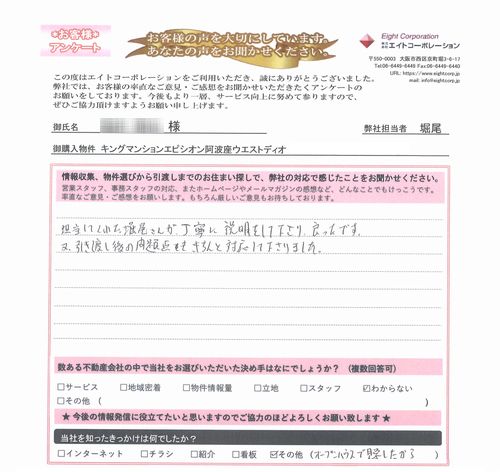 *お客様*
アンケート
お客様の声を大切にしています。
あなたの声をお聞かせください。
Eight Corporation
株式会社エイトコーポレーション
〒550-0003 大阪市西区京町堀3-6-17
Tel:06-6449-6449 Fax:06-6449-6440
URL: https://www.eightcorp.jp
mail: info@eightcorp.jp
この度はエイトコーポレーションをご利用いただき、誠にありがとうございました。
弊社では、お客様の率直なご意見・ご感想をお聞かせいただきたくアンケートの
お願いをしております。今後もより一層、サービス向上に努めて参りますので、
ぜひご協力頂けますようお願い申し上げます。
御氏名 様 弊社担当者 堀尾
御購入物件 キングマンションエピシオン阿波座ウエストディオ
情報収集、物件選びから引渡しまでのお住まい探しで、弊社の対応で感じたことをお聞かせください。
営業スタッフ、事務スタッフの対応、またホームページやメールマガジンの感想など、どんなことでもけっこうです。
率直なご意見・ご感想をお願いします。もちろん厳しいご意見もお待ちしております。
担当してくれた堀尾さんが丁寧に説明をして下さり、良かったです。
又、引き渡し後の問題点もきちんと対応して下さりました。
数ある不動産会社の中で当社をお選びいただいた決め手はなにでしょうか？（複数回答可）
□サービス □地域密着 □物件情報量 □立地 □スタッフ ☑わからない
□その他（ ）
★ 今後の情報発信に役立てたいと思いますのでご協力のほどよろしくお願い致します ★
当社を知ったきっかけは何でしたか？
□インターネット □チラシ □紹介 □看板 ☑その他（オープンハウスで見学したから）